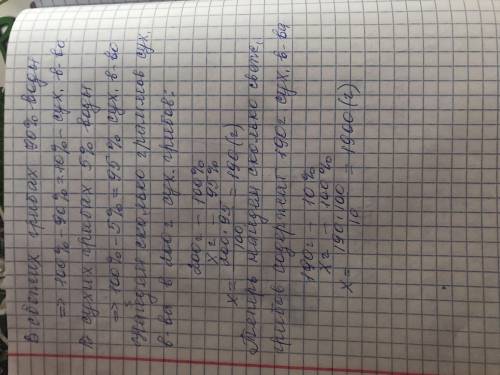 В свежих грибах 90% воды
=> 100% - 90% = 10% - сух. в-во
В сухих грибах 5% воды
=> 100% - 5% = 95% сух. в-во
Найдем сколько граммов сух.
в-ва в 200 г сух. грибов:
200г - 100%
xг - 95%
x = 200·95/100 = 190 (г)
Теперь найдем сколько свеж.
грибов содержат 190г сух. в-ва
190г - 10%
xг - 100%
x = 190·100/10 = 1900 (г)